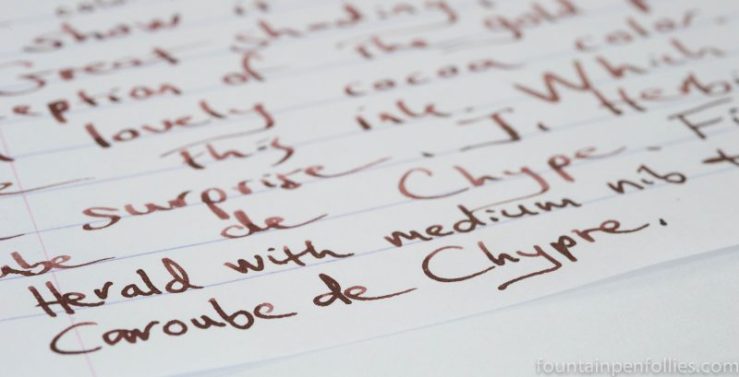 show
Great shading
eption of the gold
lovely cocoa color.
This ink. Which
surprise. J. Herbi
ube de Chype. Fi
Herald with medium nib +
Caroube de Chypre.
fountainpenfollies.com